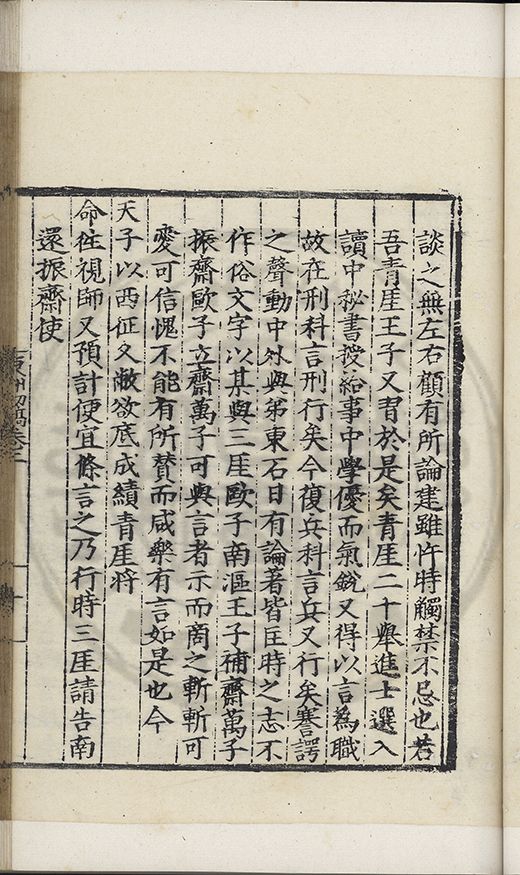 談之無左右顧有所論建雖忤時觸禁不忌也若
吾青厓王子又習於是矣青厓二十舉進士選入
讀中秘書授給事中學優而氣銳又得以言為職
故在刑科言刑行矣今復兵科言兵又行矣謇諤
之聲動中外與弟東石日有論著皆匡時之志不
作俗文字以某與三厓歐子南漚王子補齋萬子
振齋歐子立齋萬子可與言者示而商之斬斬可
愛可信愧不能有所賛而咸樂有言如是也今
天子以西征久敝欲底成績青厓將
命往視師又預計便宜條言之乃行時三厓請告南
還振齋使
東洲初稿卷之二